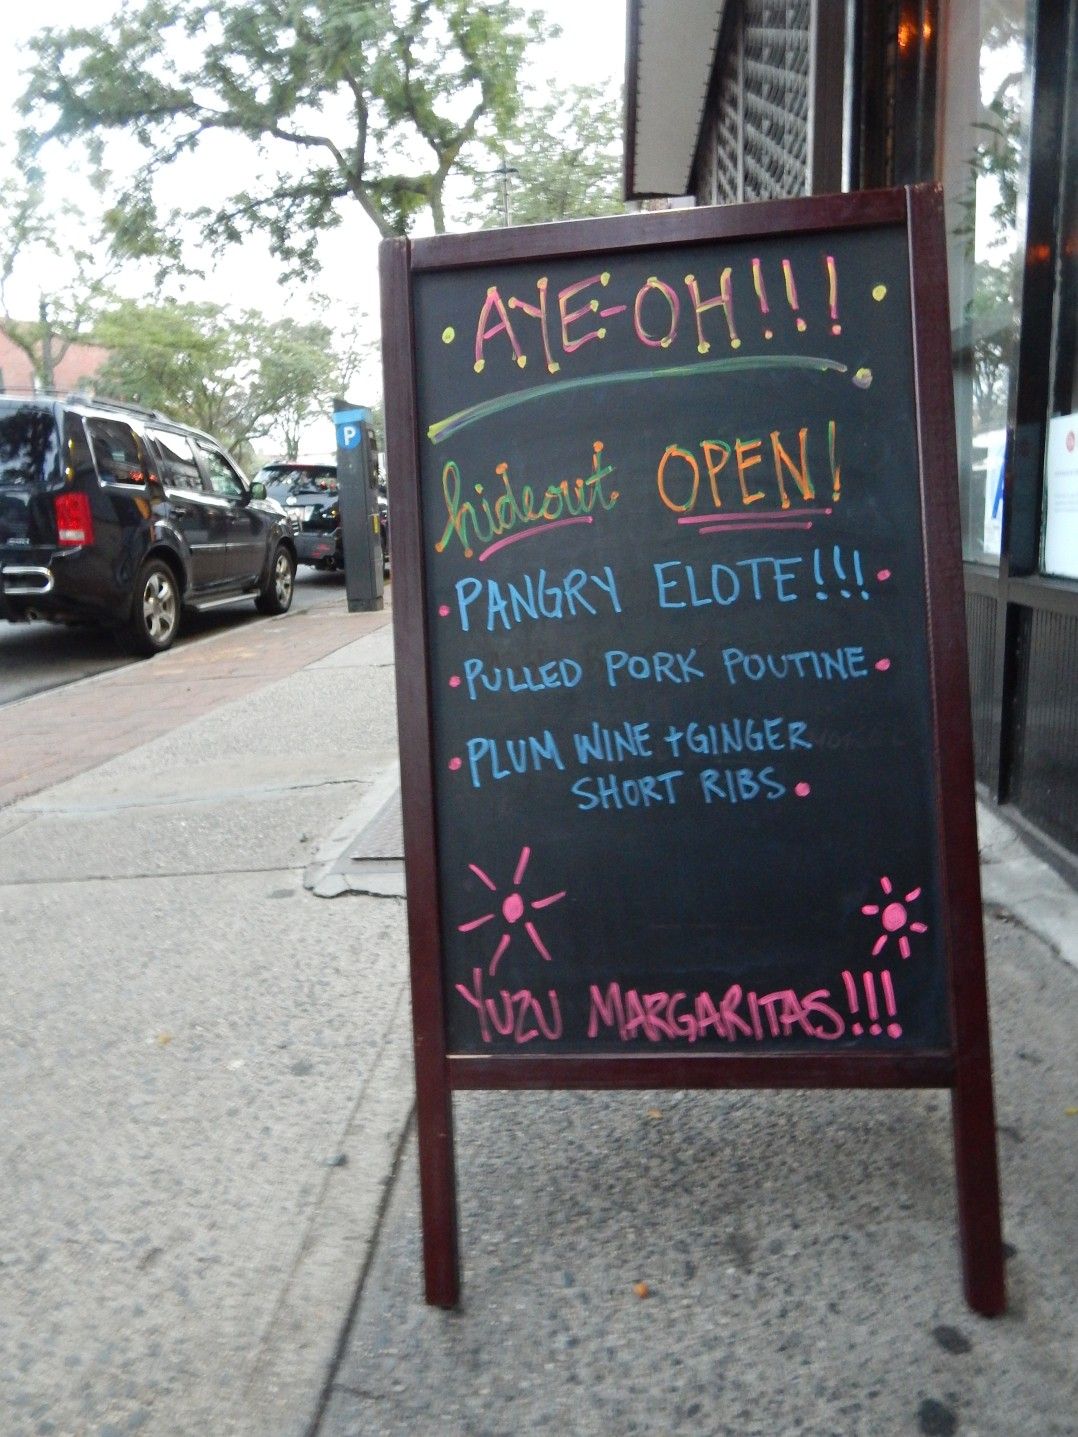 AYE-OH!!!
hideout OPEN!
PANGRY ELOTE!!!
PULLED PORK POUTINE
PLUM WINE + GINGER
SHORT RIBS
YUZU MARGARITAS!!!
P